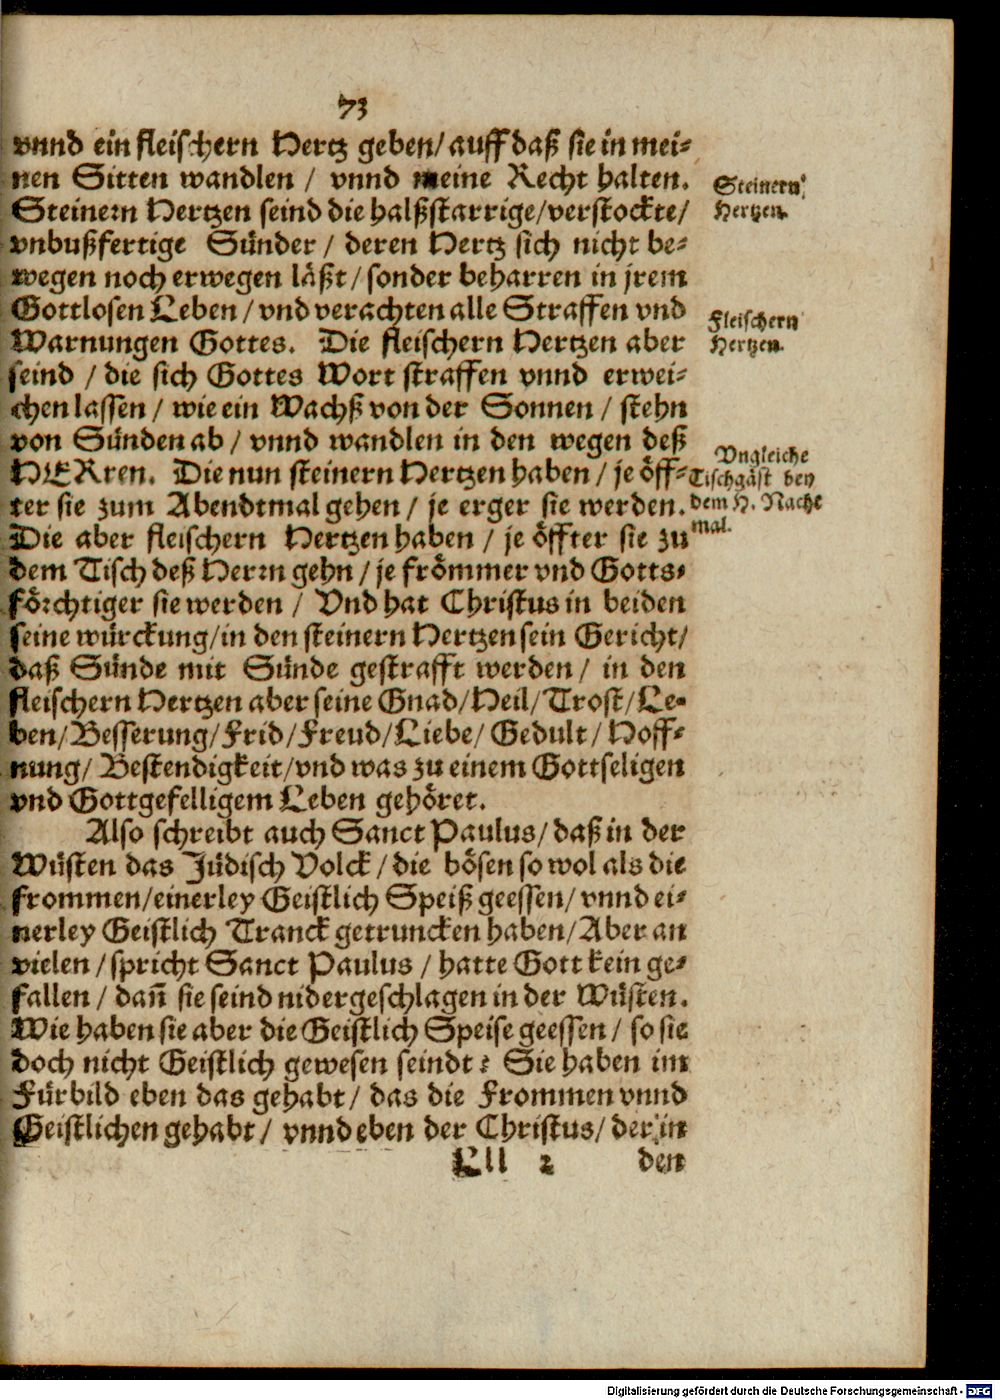 73
vnnd ein fleischern Hertz geben/ auff daß sie in mei⸗
nen Sitten wandlen / vnnd meine Recht halten.
Steinern Hertzen seind die halßstarrige/verstockte/
vnbußfertige Sünder / deren Hertz sich nicht be⸗
wegen noch erwegen läßt / sonder beharren in jrem
Gottlosen Leben / vnd verachten alle Straffen vnd
Warnungen Gottes. Die fleischern Hertzen aber
seind / die sich Gottes Wort straffen vnnd erwei⸗
chen lassen / wie ein Wachß von der Sonnen / stehn
von Sünden ab / vnnd wandlen in den wegen deß
HERren. Die nun steinern Hertzen haben / je öff⸗
ter sie zum Abendtmal gehen / je erger sie werden.
Die aber fleischern Hertzen haben / je öffter sie zu
dem Tisch deß Herrn gehn / je frömmer vnd Gotts⸗
förchtiger sie werden / Vnd hat Christus in beiden
seine würckung/in den steinern Hertzen sein Gericht/
daß Sünde mit Sünde gestrafft werden / in den
fleischern Hertzen aber seine Gnad/Heil/Trost/Le⸗
ben/Besserung/Frid/Freud/Liebe/ Gedult/Hoff⸗
nung/ Bestendigkeit/vnd was zu einem Gottseligen
vnd Gottgefelligem Leben gehöret.
Also schreibt auch Sanct Paulus/ daß in der
Wüsten das Jüdisch Volck / die bösen so wol als die
frommen/einerley Geistlich Speiß geessen/ vnnd ei⸗
nerley Geistlich Tranck getruncken haben/Aber an
vielen / spricht Sanct Paulus / hatte Gott kein ge⸗
fallen / dañ sie seind nidergeschlagen in der Wüsten.
Wie haben sie aber die Geistlich Speise geessen / so sie
doch nicht Geistlich gewesen seindt? Sie haben im
Fürbild eben das gehabt / das die Frommen vnnd
Geistlichen gehabt / vnnd eben der Christus/ der in
Lll 2 den
Steinern
Hertzen.
Fleischern
Hertzen.
Vngleiche
Tischgäst bey
dem H. Nacht
mal.
Digitalisierung gefördert durch die Deutsche Forschungsgemeinschaft - DFG